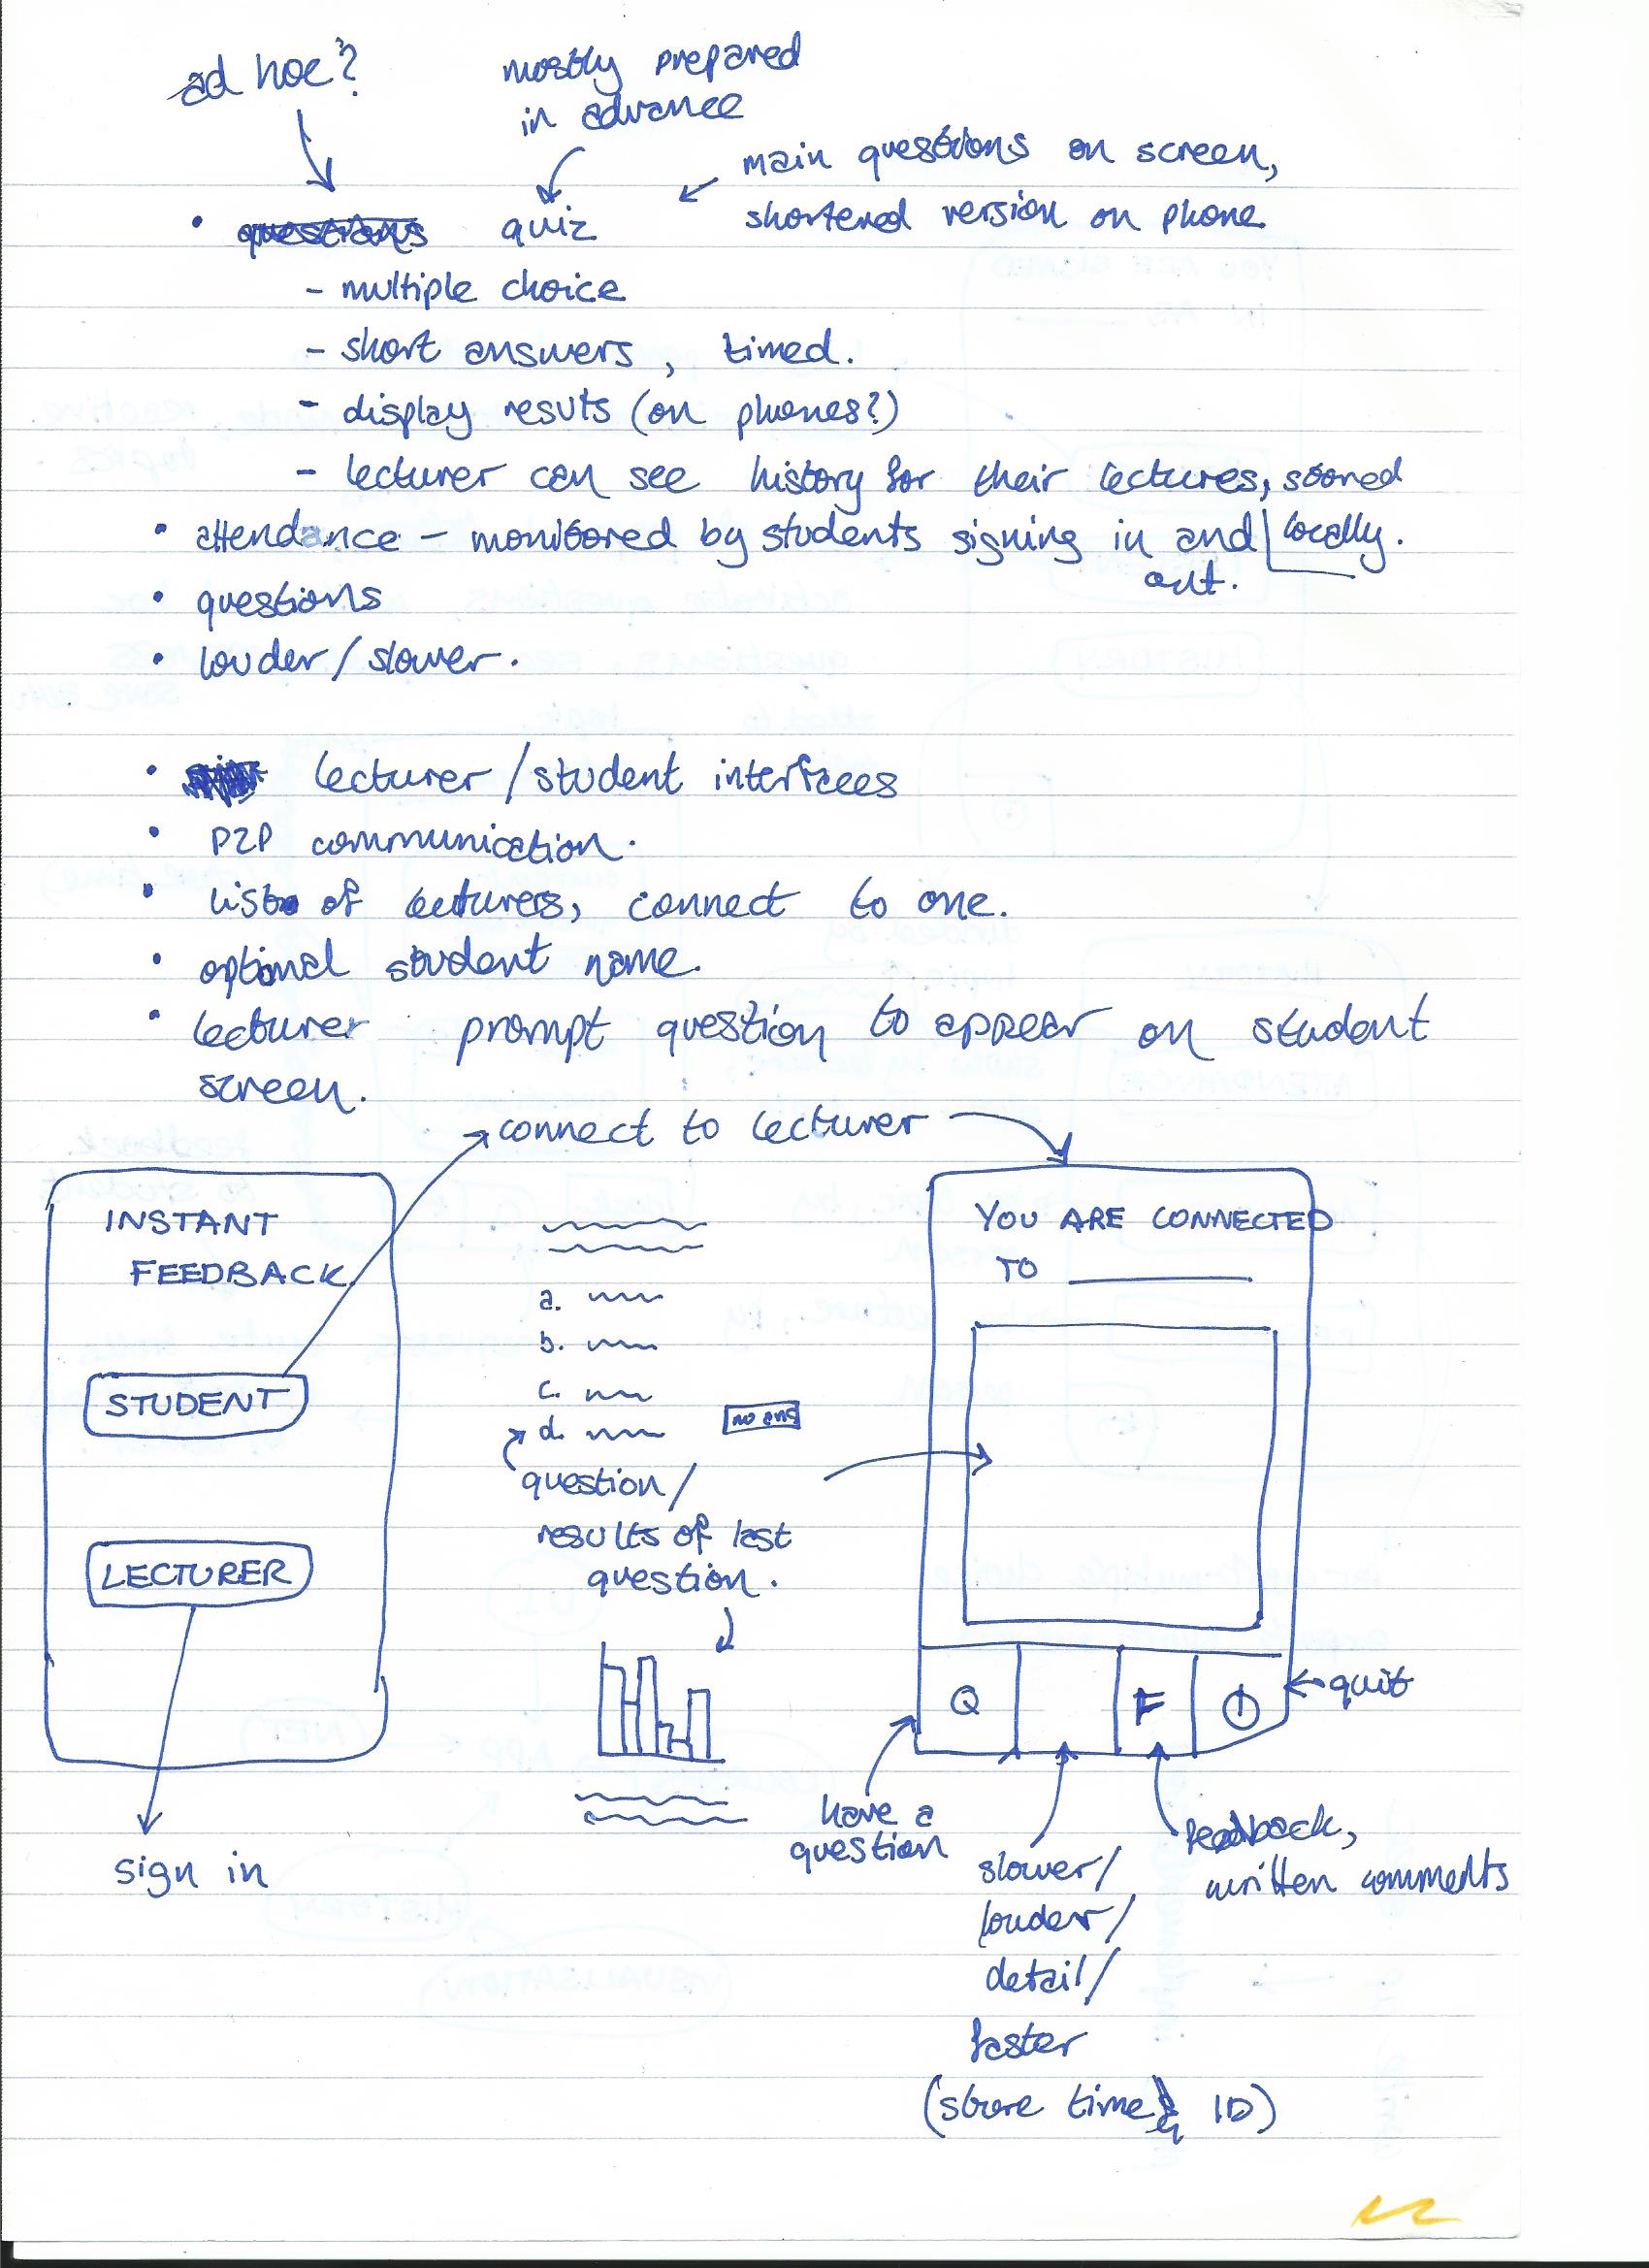 ad hoc?
mostly prepared
in advance
main questions on screen,
shortened version on phone
• questions quiz
- multiple choice
- short answers, timed.
- display resuts (on phones?)
- lecturer can see history for their lectures, stored
locally.
• attendance – monitored by students signing in and
out.
• questions
• louder/slower.
• lecturer/student interfaces
• P2P communication.
• list of lecturers, connect to one.
• optional student name.
• lecturer prompt question to appear on student
screen.
connect to lecturer
INSTANT
FEEDBACK
STUDENT
LECTURER
sign in
a.
b.
c.
d.
no ans
question/
results of last
question.
YOU ARE CONNECTED
TO
Q
F
quit
have a
question
slower/
louder/
detail/
faster
(store time & ID)
feedback,
written comments